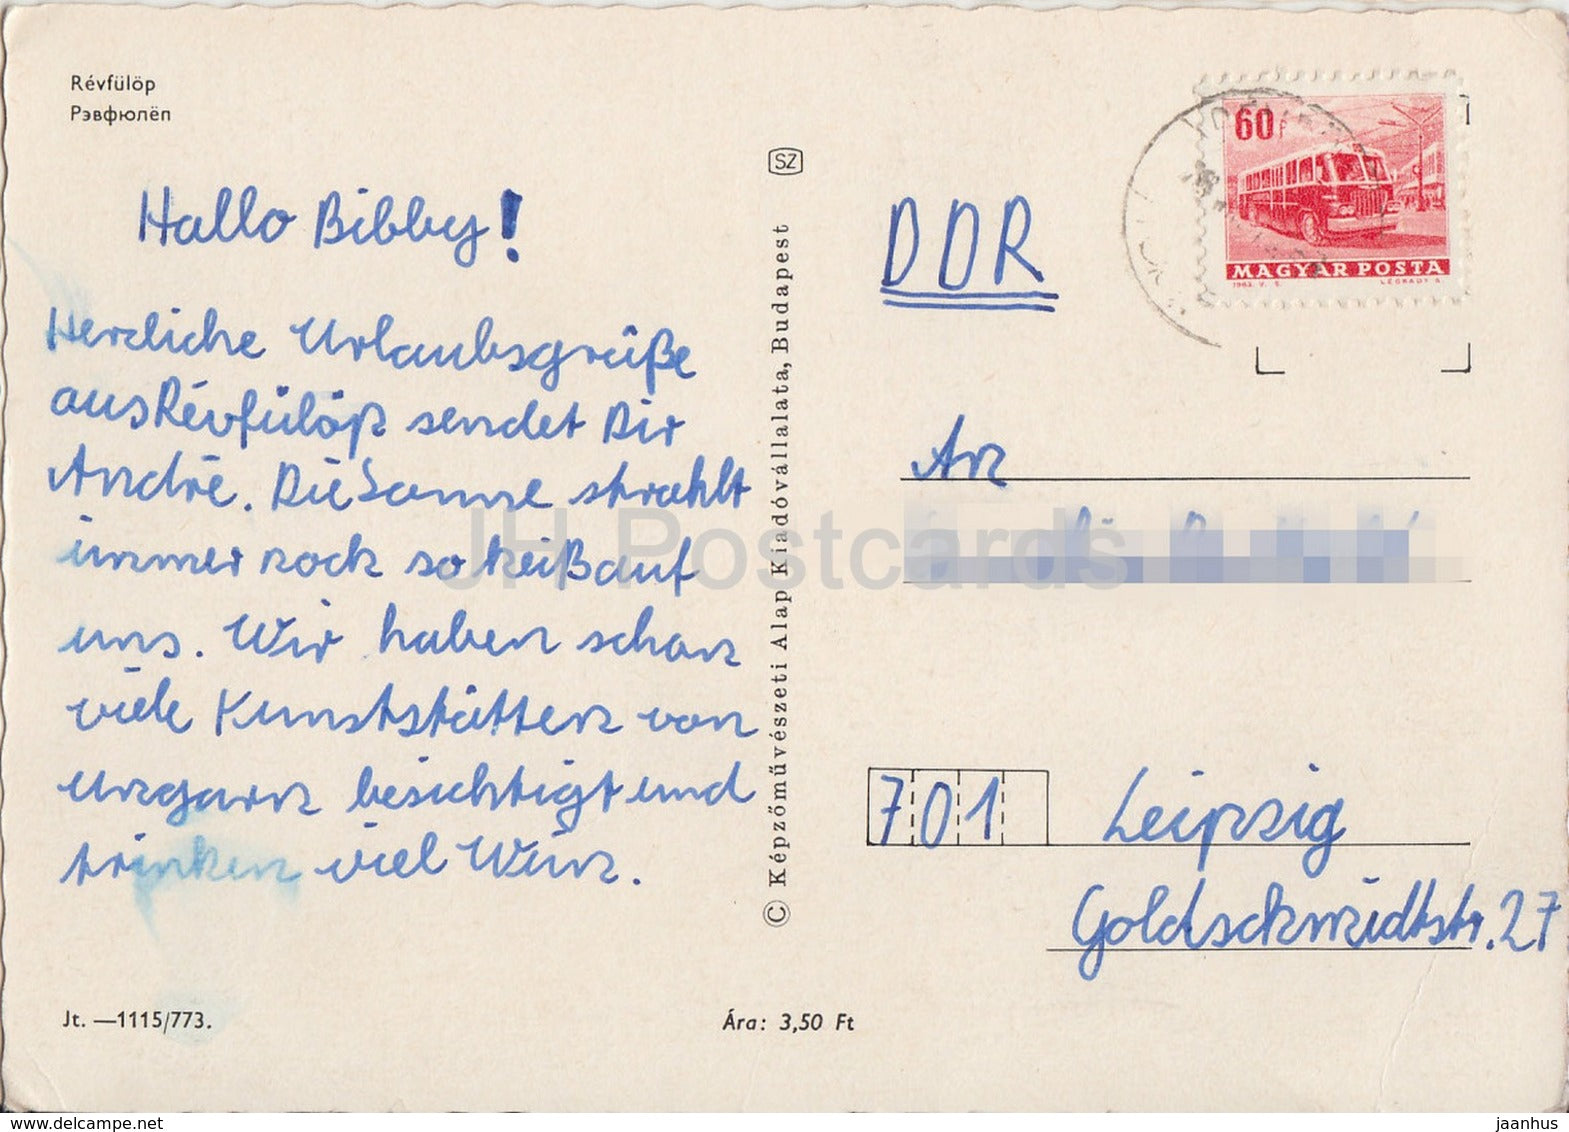 Révfülöp
Рэвфюлёп
Hallo Bibby!
Herzliche Urlaubsgrüße
aus Révfülöp sendet Dir
André. Die Sonne strahlt
immer noch so heiß auf
uns. Wir haben schon
viele Kunststätten von
Ungarn besichtigt und
trinken viel Wein.
Jt. —1115/773.
Ára: 3,50 Ft
SZ
© Képzőművészeti Alap Kiadóvállalata, Budapest
60f
MAGYAR POSTA
1963. V. S.
LÉGRÁDY S.
DDR
An
701 Leipzig
Goldschmidtstr. 27
JH Postcards
www.delcampe.net
jaanhus